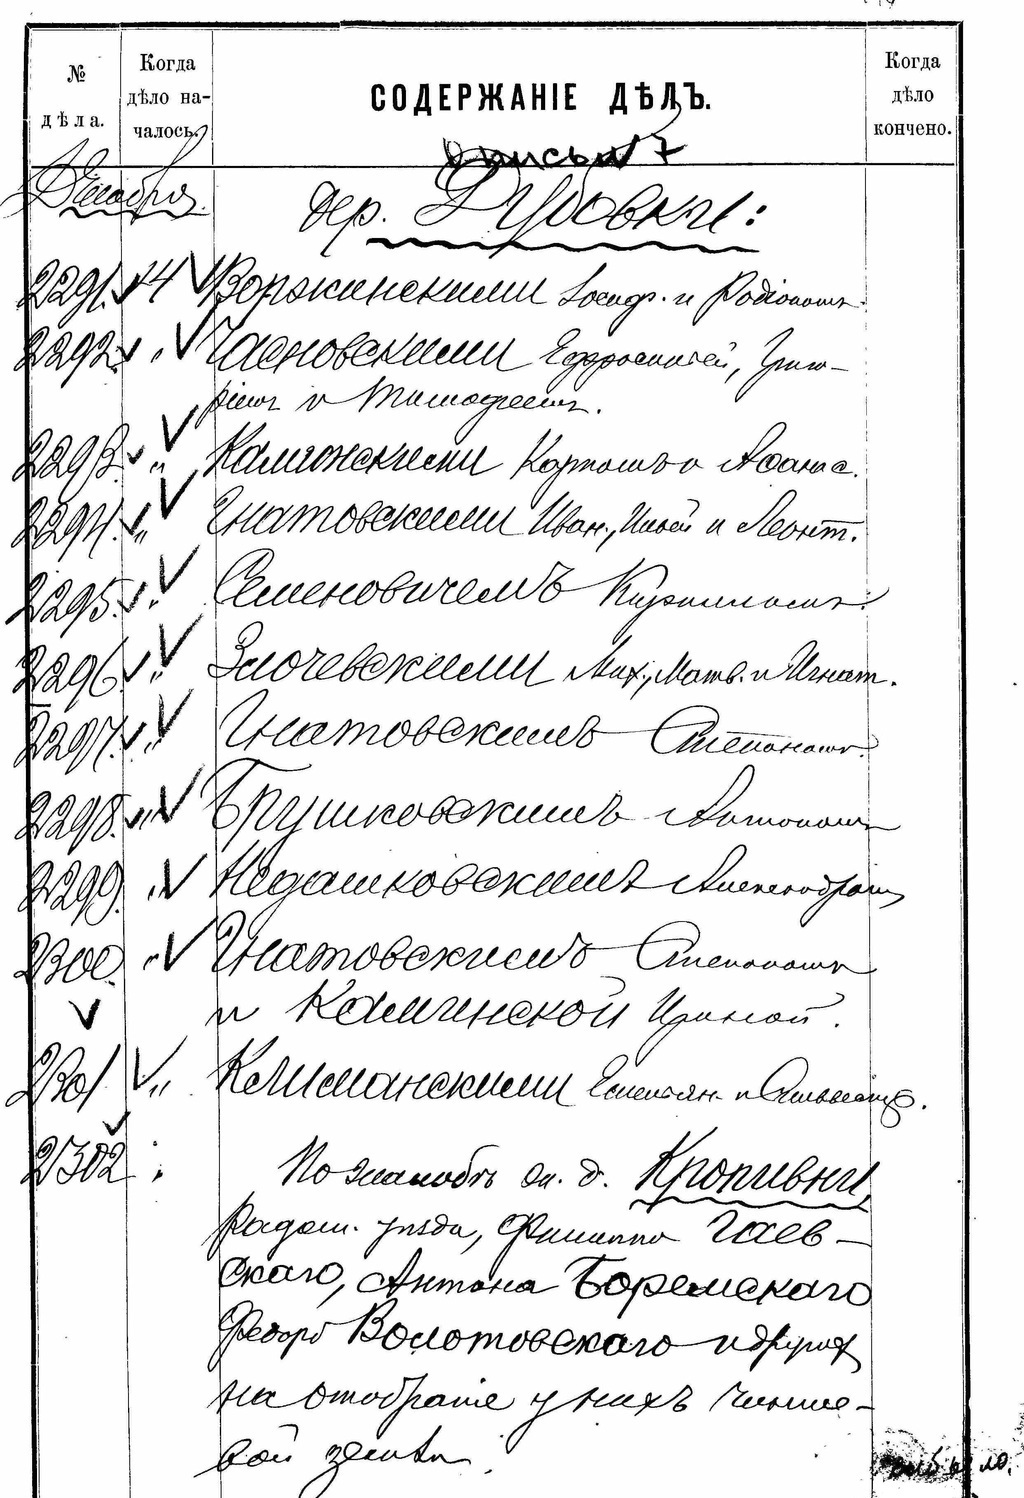 № дѣла.
Когда дѣло началось.
СОДЕРЖАНІЕ ДѢЛЪ.
Когда дѣло кончено.
Опись № 7
Декабря
дер. Дубовки:
2291. 14 Воржинскими Іосиф. и Родіономъ.
2292. " Чаеновскими Ефросиніей, Григо-
ріемъ и Тимофеемъ.
2293. " Каминскими Карпомъ и Афанас.
2294. " Гнатовскими Иван., Ильей и Леонт.
2295. " Семеновичемъ Кирилломъ.
2296. " Злочевскими Мих., Матв. и Игнат.
2297. " Гнатовскимъ Степаномъ.
2298. " Брушковскимъ Антономъ
2299. " Недашковскимъ Александромъ
2300. " Гнатовскимъ Степаномъ
и Каминской Ириной.
2301 " Климанскими Емельян. и
2302 : По жалобѣ дер. Кропивни,
Радом. уѣзда, Филиппа Гаев-
скаго, Антона Боремскаго
Федора Волотовскаго и другихъ
на отобраніе у нихъ чинше-
вой земли.
выбыло.